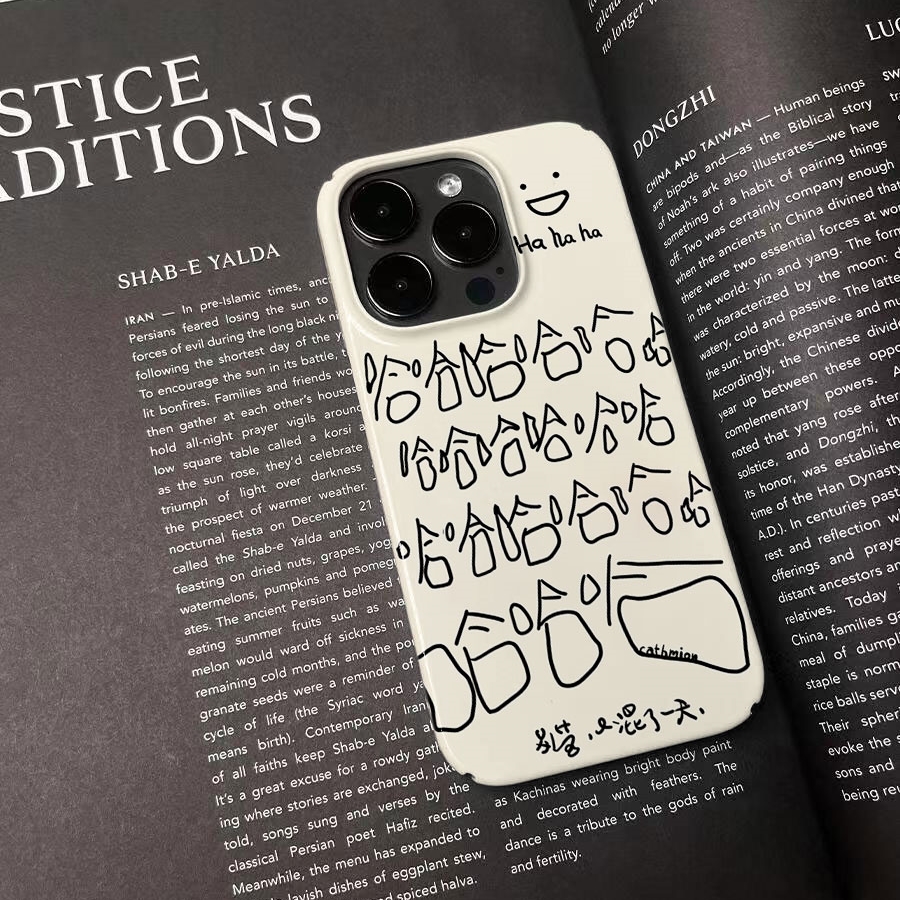 STICE
ADITIONS
SHAB-E YALDA
IRAN — In pre-Islamic times,
Persians feared losing the sun to
forces of evil during the long black
following the shortest day of the
To encourage the sun in its battle,
lit bonfires. Families and friends
then gather at each other's houses
hold all-night prayer vigils around
low square table called a korsi
as the sun rose, they'd celebrate
triumph of light over darkness
the prospect of warmer weather.
nocturnal fiesta on December 21
called the Shab-e Yalda and
feasting on dried nuts, grapes,
watermelons, pumpkins and
ates. The ancient Persians believed
eating summer fruits such as
melon would ward off sickness in
remaining cold months, and the
granate seeds were a reminder of
cycle of life (the Syriac word
means birth). Contemporary
of all faiths keep Shab-e Yalda
It's a great excuse for a rowdy
ing where stories are exchanged,
told, songs sung and verses by the
classical Persian poet Hafiz recited.
Meanwhile, the menu has expanded to
lavish dishes of eggplant stew,
spiced halva.
Ha ha ha
哈哈哈哈哈哈
哈哈哈哈哈哈
哈哈哈哈哈哈
哈哈哈
cathmion
又混了一天.
as Kachinas wearing bright body paint
and decorated with feathers. The
dance is a tribute to the gods of rain
and fertility.
no longer
DONGZHI
CHINA AND TAIWAN — Human beings
are bipods and—as the Biblical story
of Noah's ark also illustrates—we have
something of a habit of pairing things
off. Two was certainly company enough
when the ancients in China divined that
there were two essential forces at work
in the world: yin and yang. The former
was characterized by the moon:
watery, cold and passive. The latter
the sun: bright, expansive and
Accordingly, the Chinese divided
year up between these
complementary powers.
noted that yang rose after
solstice, and Dongzhi, the
its honor, was established
time of the Han Dynasty
A.D.). In centuries past
rest and reflection
offerings and
distant ancestors and
relatives. Today
China, families
meal of
staple is
rice balls
Their
evoke the
sons and
being
LUC